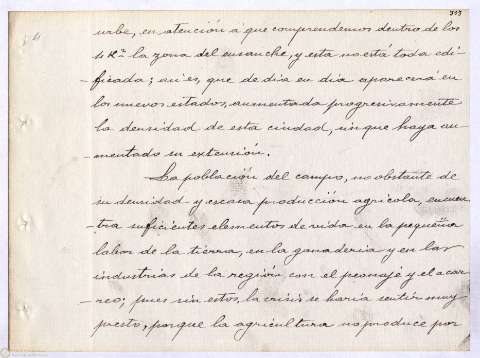 urbe, en atención á que comprendemos dentro de los
la zona del ensanche, y esta no está toda edi-
-ficada; asi es, que de dia en dia aparecerá en
los nuevos estados, aumentada progresivamente
la densidad de esta ciudad, sin que haya au-
-mentado su extensión.
La población del campo, no obstante de
su densidad y escasa producción agricola, encuen-
-tra suficientes elementos de vida en la pequeña
labor de la tierra, en la ganaderia y en las
industrias de la región, con el peonaje y el acar-
-reo; pues sin estos, la crisis se haria sentir muy
presto, porque la agricultura no produce por